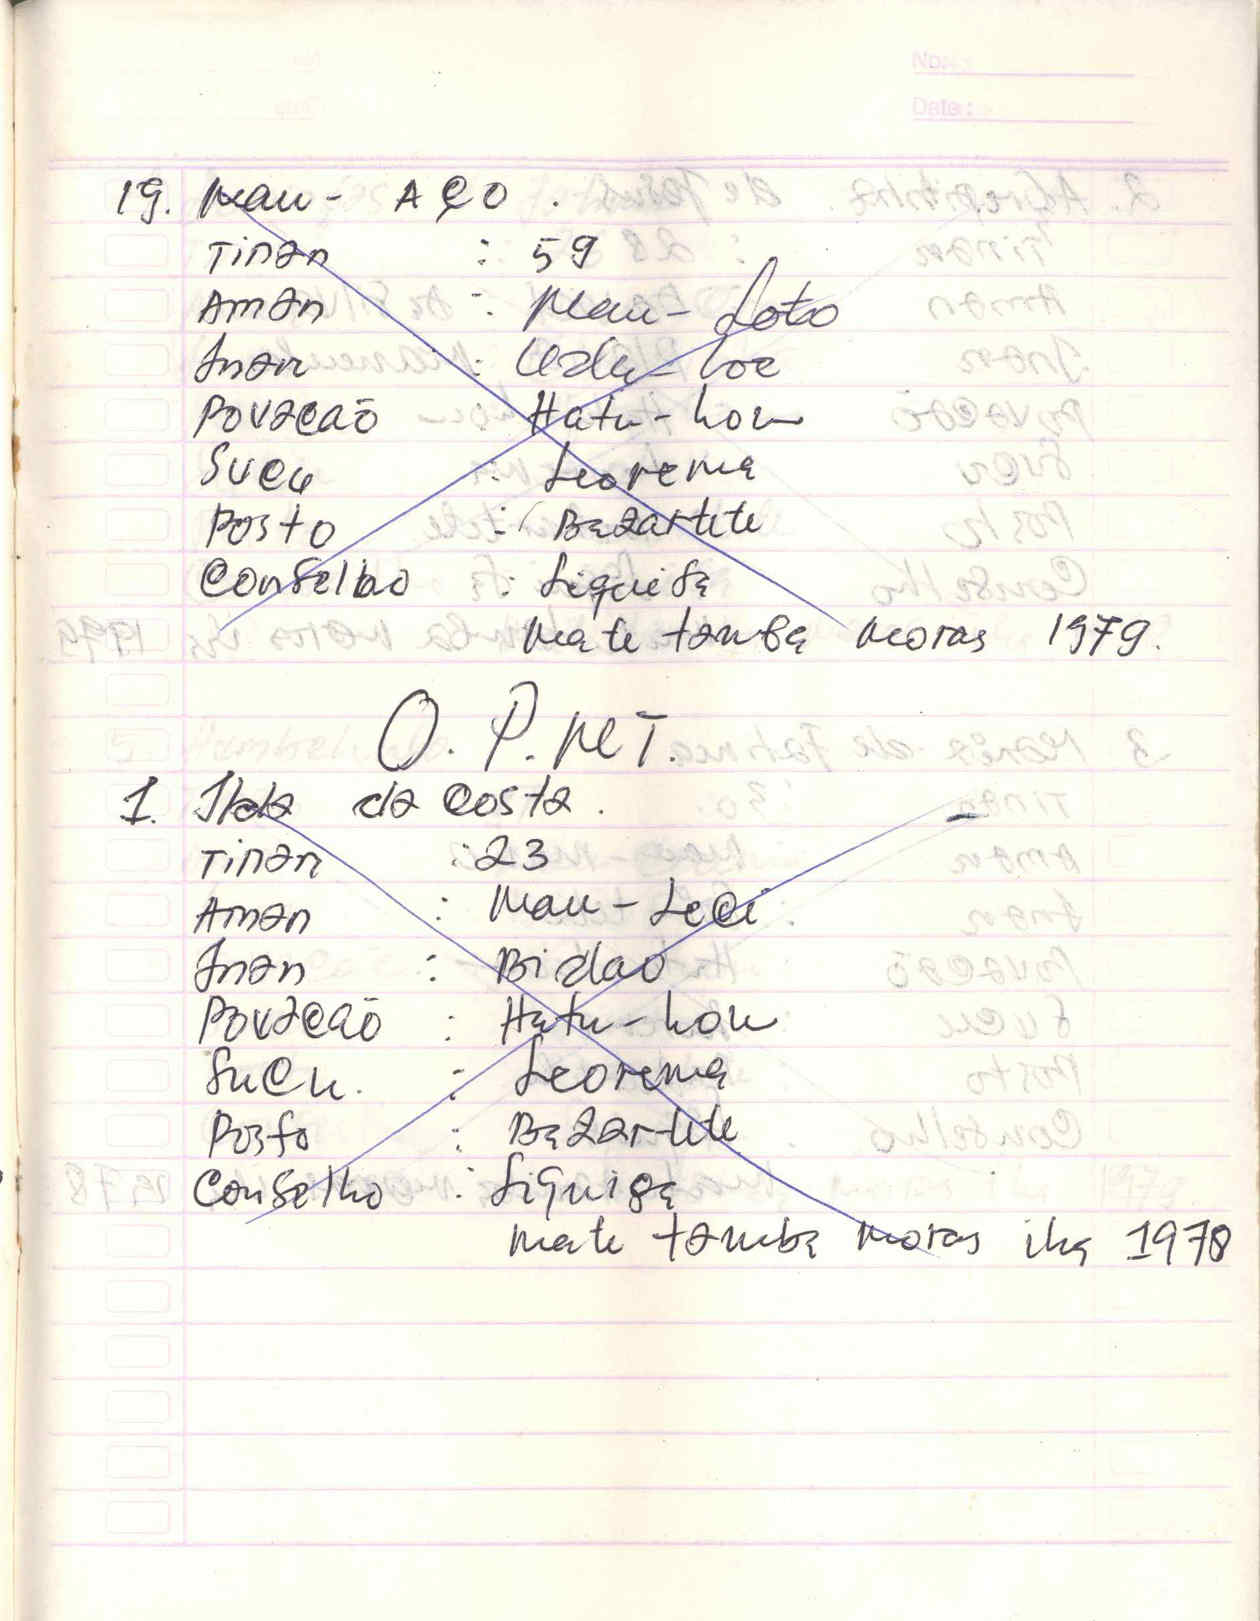 No.:
Date:
19. Mau - Aço.
Tinan : 59
Aman : Mau - Loto
Inan : Uda - loe
Povacaō : Hatu - hou
Sucu : Leorema
Posto : Bazartete
Conselho : Liquisa
mate tamba moras 1979.
O. P. MT.
1. Ilda da Costa.
Tinan : 23
Aman : Mau - Leci
Inan : Bidao
Povacaō : Hatu - hou
Sucu. : Leorema
Posto : Bazartete
Conselho : Liquisa
mate tamba moras iha 1978